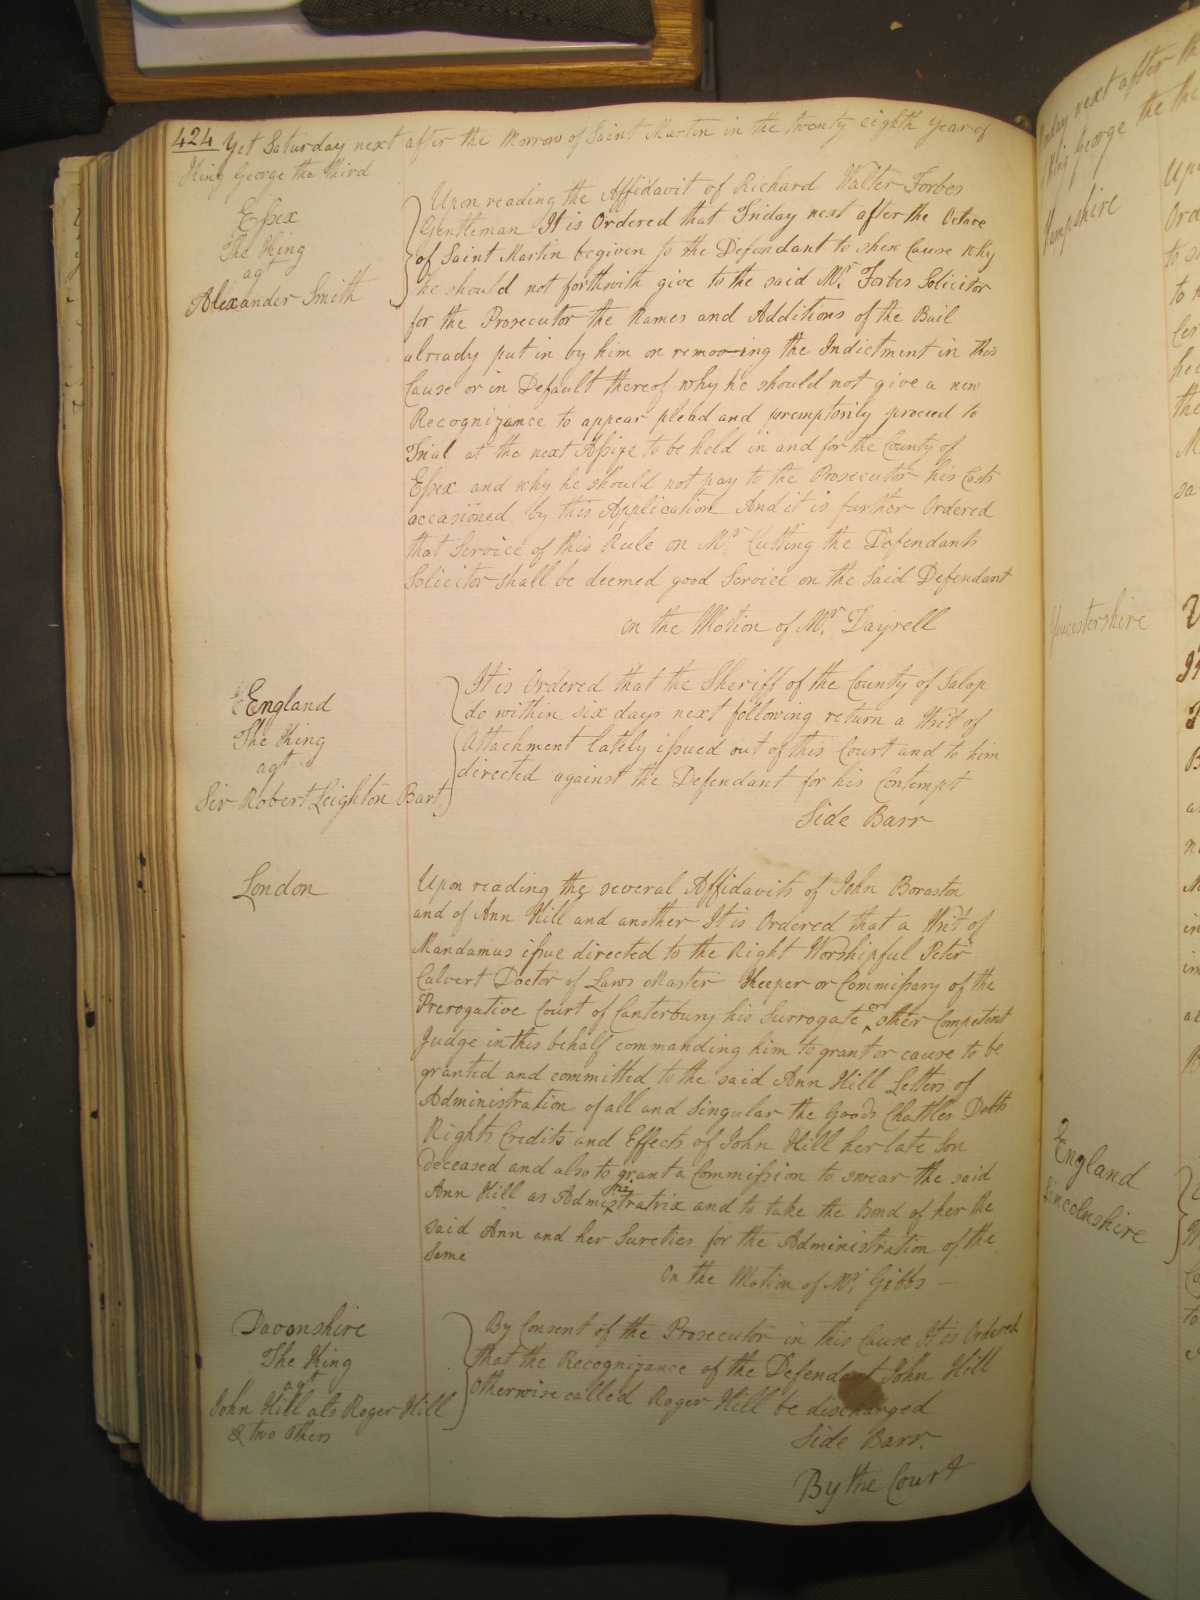 424 Yet Saturday next after the Morrow of Saint Martin in the twenty eighth year of
King George the Third
Essex
The King
agt
Alexander Smith
Upon reading the Affidavit of Richard Walter Forbes
Gentleman It is Ordered that Friday next after the Octave
of Saint Martin be given to the Defendant to shew Cause why
he should not forthwith give to the said Mr. Forbes Solicitor
for the Prosecutor the Names and Additions of the Bail
already put in by him on removing the Indictment in this
Cause or in Default thereof why he should not give a new
Recognizance to appear plead and peremptorily proceed to
Trial at the next Assize to be held in and for the County of
Essex and why he should not pay to the Prosecutor his Costs
occasioned by this Application And it is further Ordered
that Service of this Rule on Mr. Cutting the Defendants
Solicitor shall be deemed good Service on the said Defendant
on the Motion of Mr. Dayrell
England
The King
agt
Sir Robert Leighton Bart.
It is Ordered that the Sheriff of the County of Salop
do within six days next following return a Writ of
Attachment lately issued out of this Court and to him
directed against the Defendant for his Contempt
Side Barr
London
Upon reading the several Affidavits of John Boraston
and of Ann Hill and another It is Ordered that a Writ of
Mandamus issue directed to the Right Worshipful Peter
Calvert Doctor of Laws Master Keeper or Commissary of the
Prerogative Court of Canterbury his Surrogate or other Competent
Judge in this behalf commanding him to grant or cause to be
granted and committed to the said Ann Hill Letters of
Administration of all and Singular the Goods Chattles Debts
Rights Credits and Effects of John Hill her late Son
deceased and also to grant a Commission to swear the said
Ann Hill as Administratrix and to take the Bond of her the
said Ann and her Sureties for the Administration of the
same
On the Motion of Mr. Gibbs
Devonshire
The King
agt
John Hill als Roger Hill
& two others
By Consent of the Prosecutor in this Cause It is Ordered
that the Recognizance of the Defendant John Hill
otherwise called Roger Hill be discharged
Side Barr.
By the Court
next after the
King George the
Hampshire
England
Lincolnshire